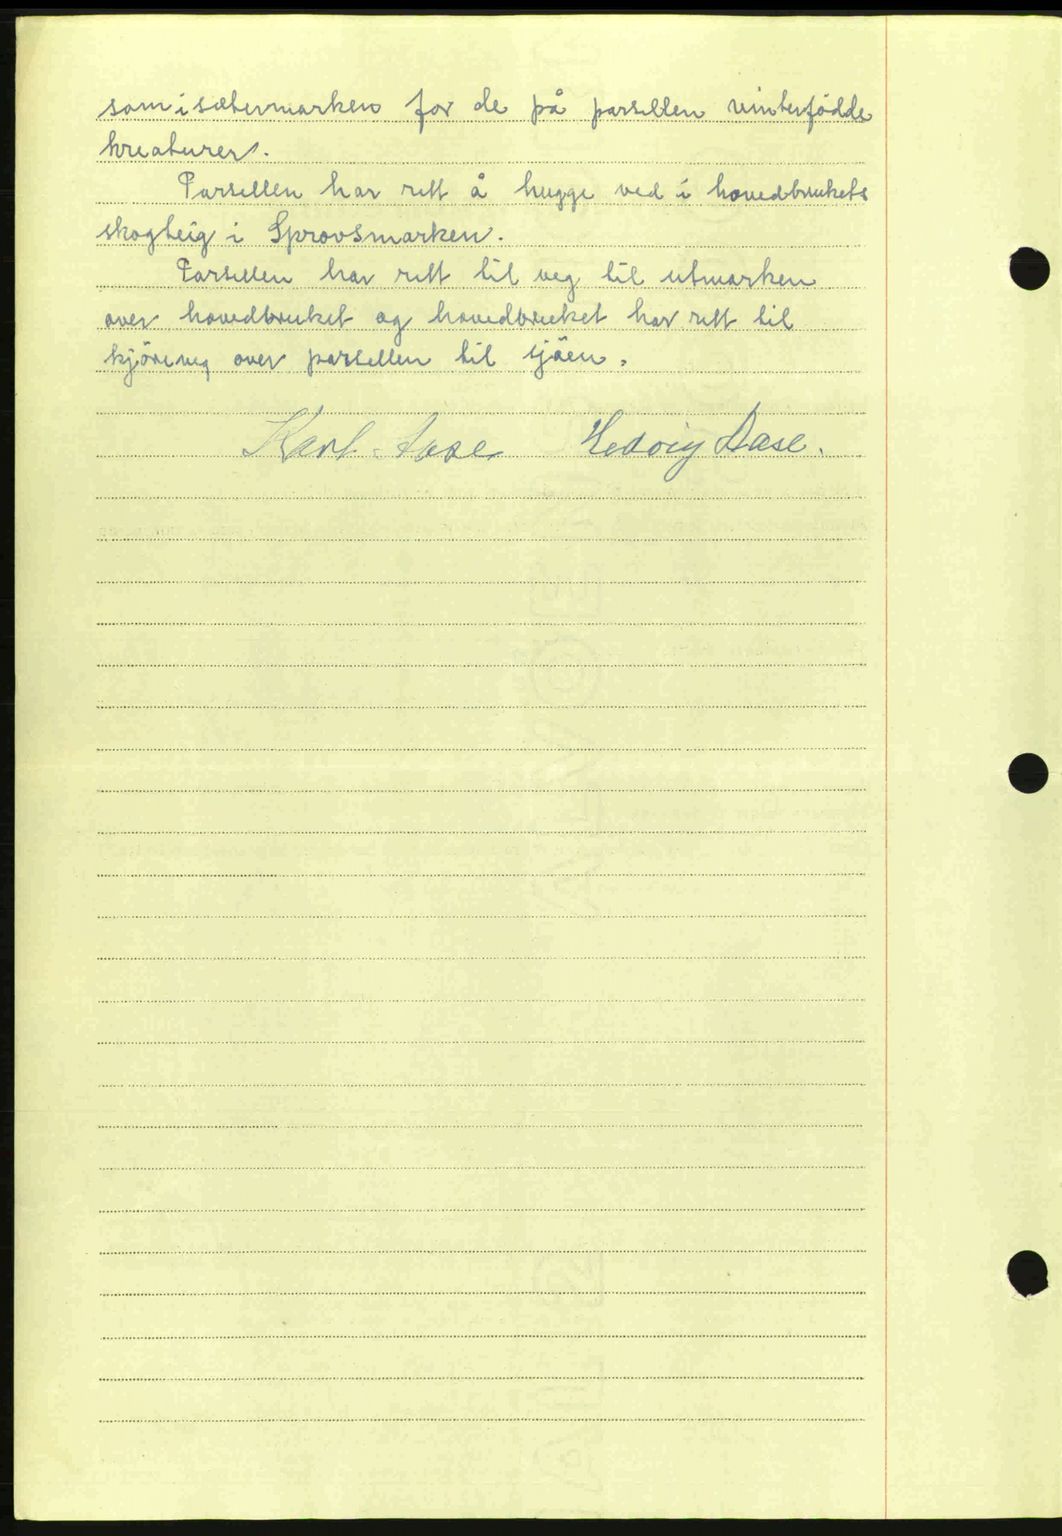 som i sætermarken for de på parsellen vinterfødde
kreaturer.
Parsellen har rett å hugge ved i hovedbrukets
skogteig i Sprovsmarken.
Parsellen har rett til veg til utmarken
over hovedbruket og hovedbruket har rett til
kjöreveg over parsellen til sjöen.
Karl Aase Hedvig Aase.